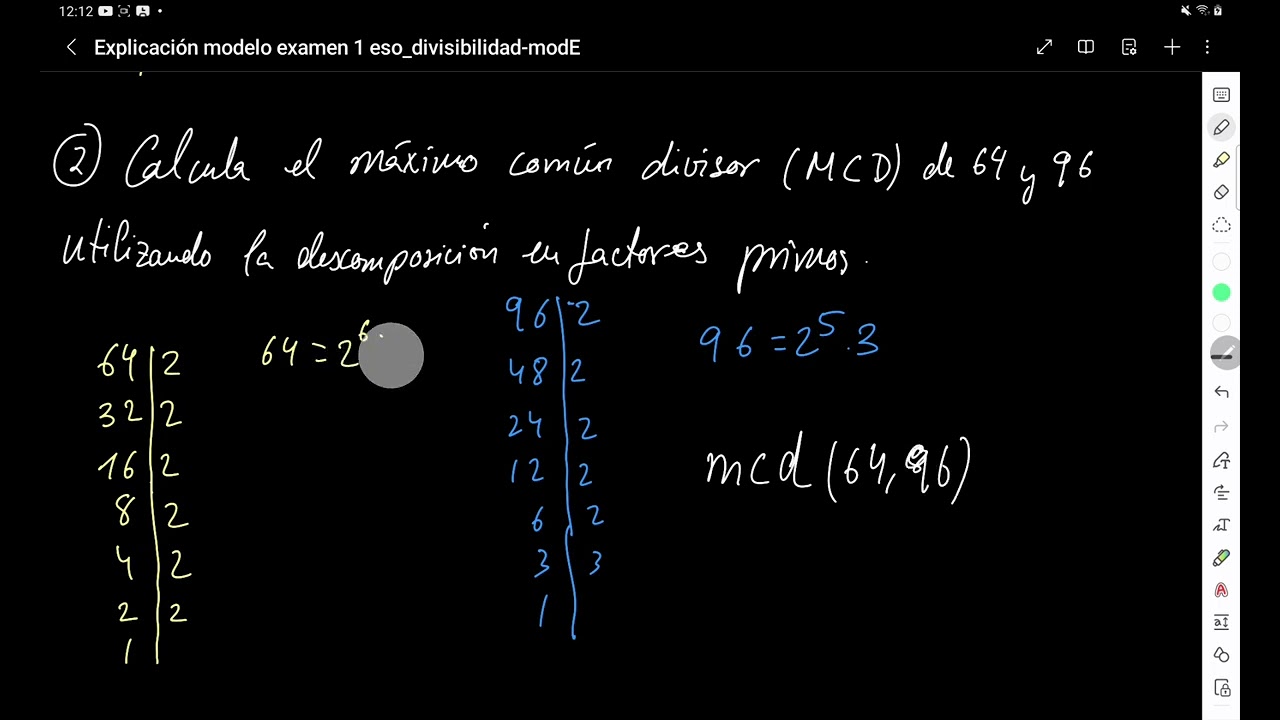 12:12
Explicación modelo examen 1 eso_divisibilidad-modE
② Calcula el máximo común divisor (MCD) de 64 y 96
utilizando la descomposición en factores primos.
64 | 2
32 | 2
16 | 2
8 | 2
4 | 2
2 | 2
1 |
64 = 2⁶·
96 | 2
48 | 2
24 | 2
12 | 2
6 | 2
3 | 3
1 |
96 = 2⁵·3
mcd (64, 96)